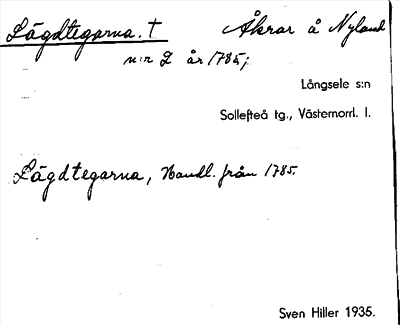 Lägdtegarna. † Åkrar å Nyland
n:r 2 år 1785;
Långsele s:n
Sollefteå tg., Västernorrl. l.
Lägdtegarna, Handl. från 1785.
Sven Hiller 1935.